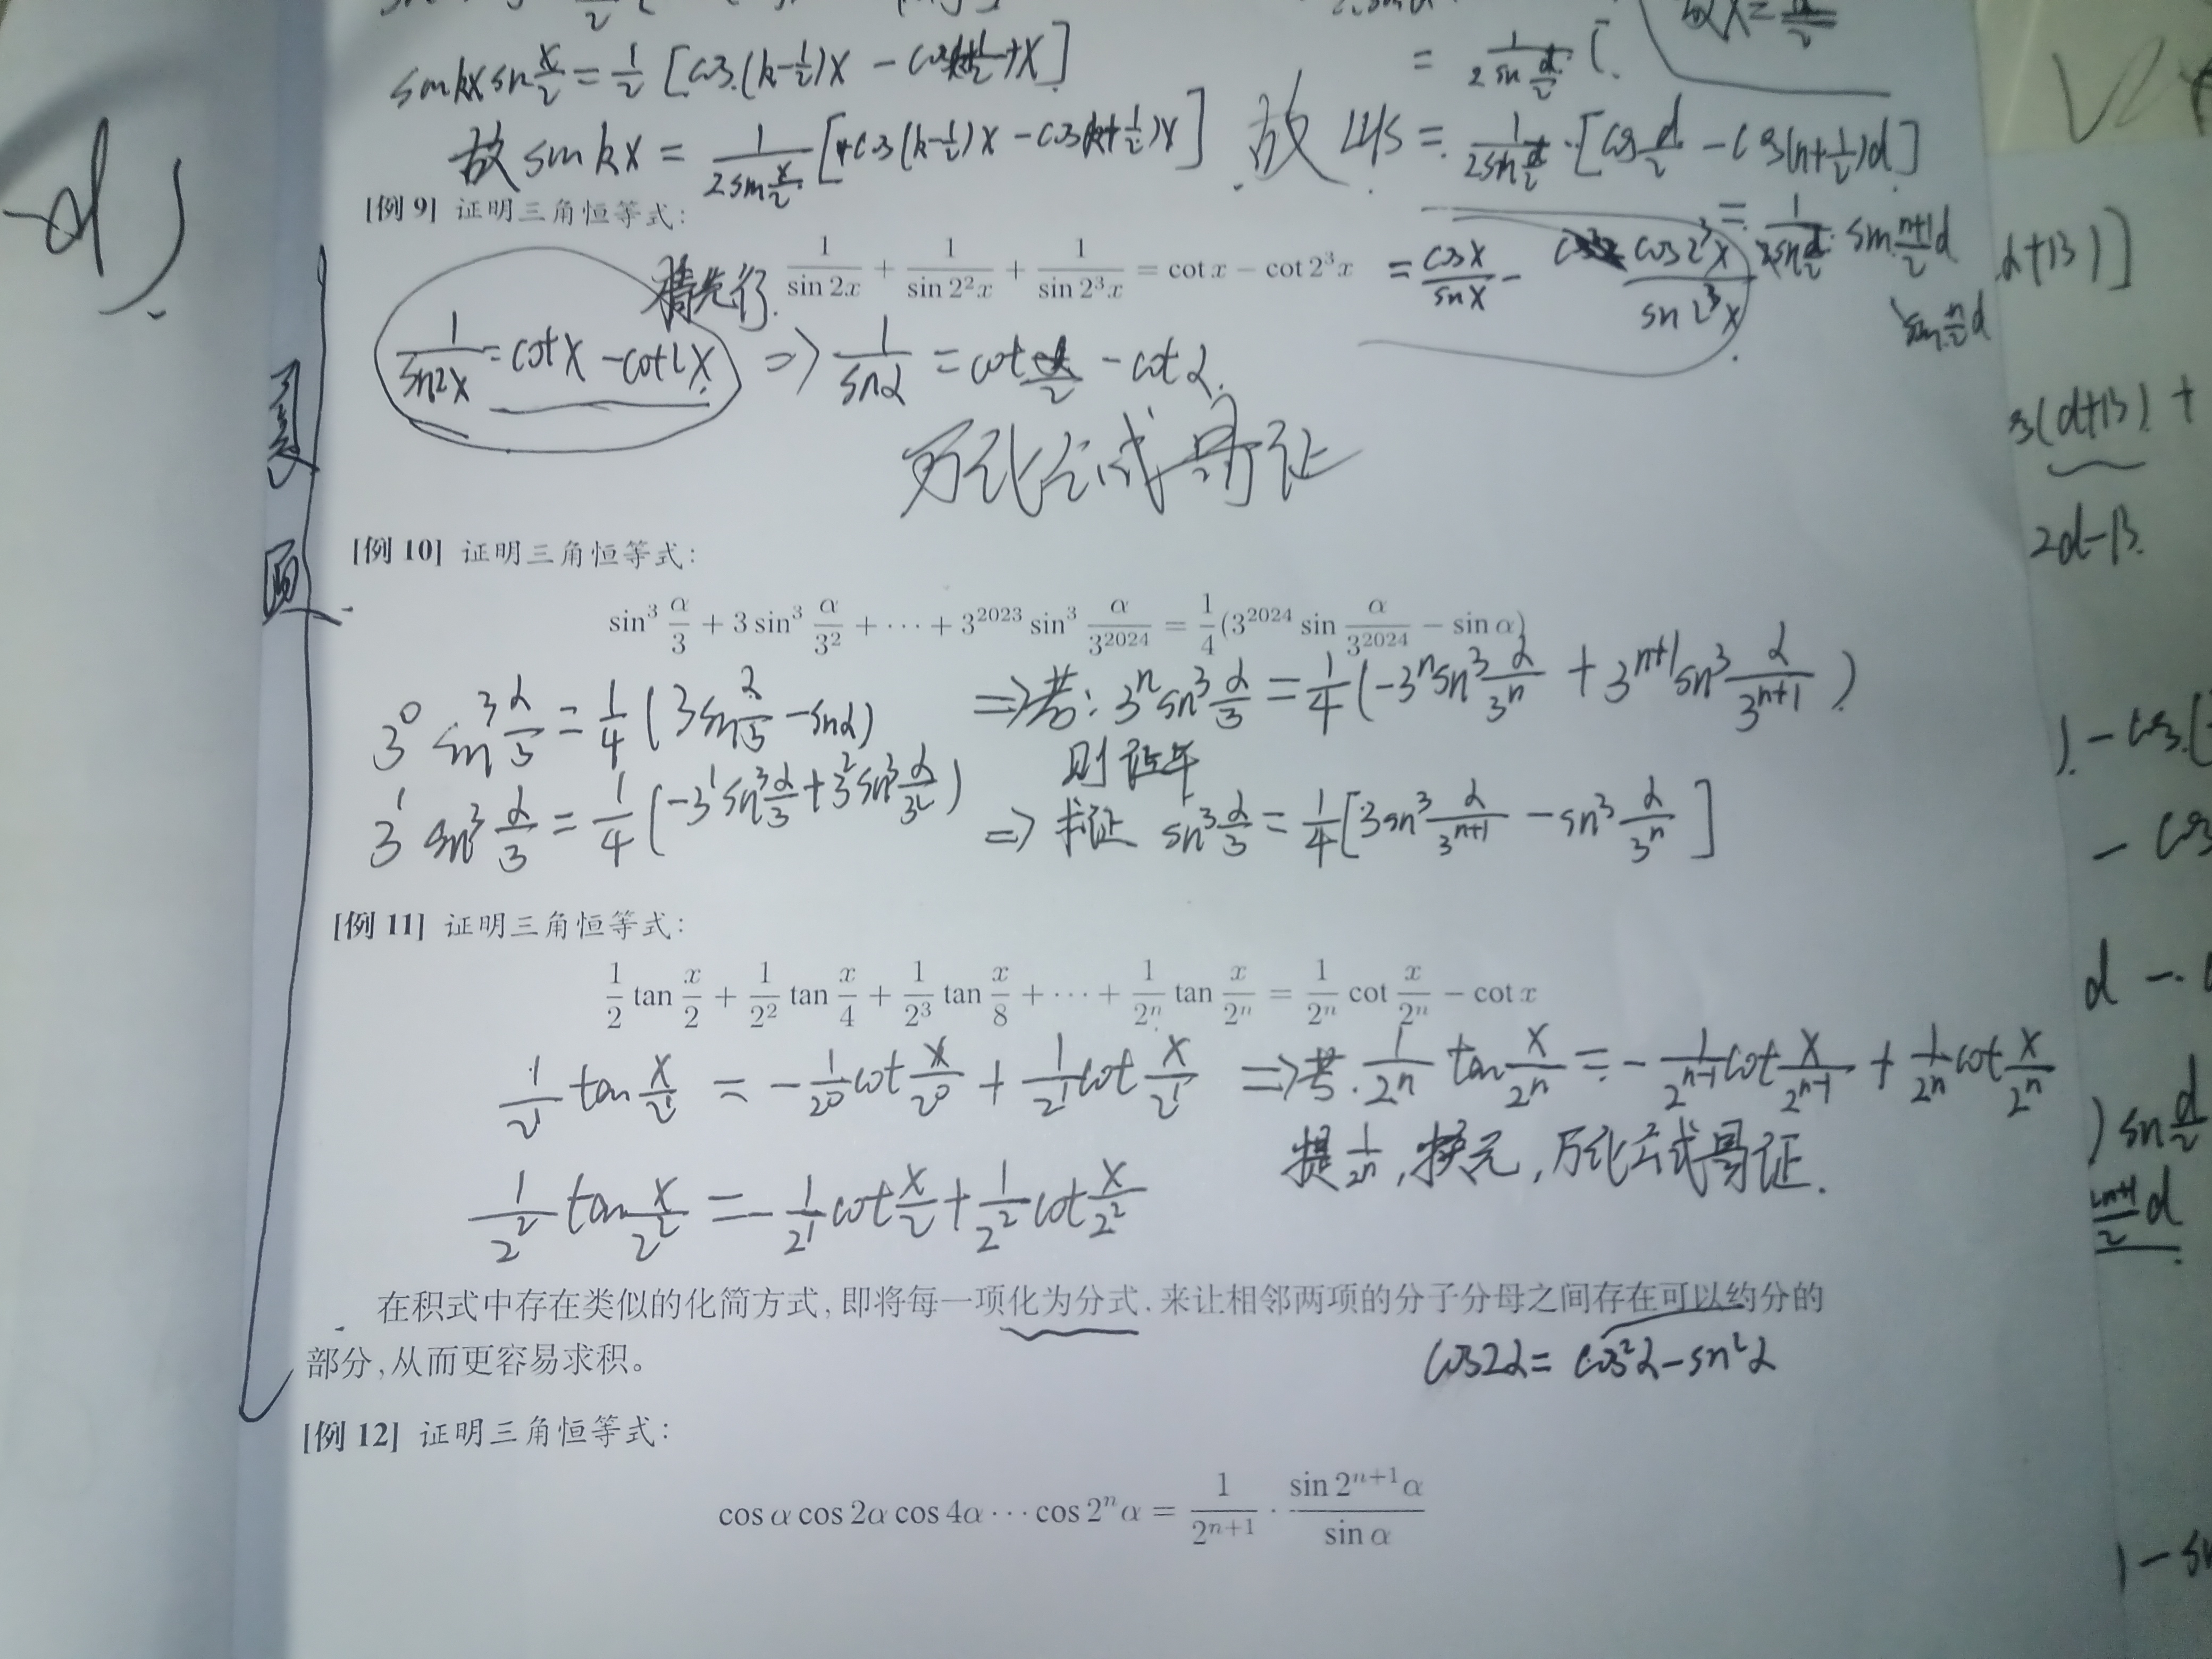 sin kx sin x/2 = 1/2 [cos(k-1/2)x - cos(k+1/2)x]
= 1/(2 sin α/2) [
故 sin kx = 1/(2 sin x/2) [cos(k-1/2)x - cos(k+1/2)x]
故 LHS = 1/(2 sin α/2) · [cos α/2 - cos(n+1/2)α]
[例 9] 证明三角恒等式:
1/sin 2x + 1/sin 2²x + 1/sin 2³x = cot x - cot 2³x
= cos x/sin x - cos 2³x/sin 2³x
sin (n+1)/2 α
sin n/2 α
1/sin2x = cot x - cot 2x
⇒ 1/sin α = cot α/2 - cot α.
万能公式易证
[例 10] 证明三角恒等式:
sin³ α/3 + 3 sin³ α/3² + ⋯ + 3²⁰²³ sin³ α/3²⁰²⁴ = 1/4 (3²⁰²⁴ sin α/3²⁰²⁴ - sin α)
3⁰ sin³ α/3 = 1/4 (3 sin α/3 - sin α)
⇒ 若: 3ⁿ sin³ α/3 = 1/4 (-3ⁿ sin³ α/3ⁿ + 3ⁿ⁺¹ sin³ α/3ⁿ⁺¹)
则证毕
3¹ sin³ α/3 = 1/4 (-3¹ sin³ α/3 + 3² sin³ α/3²)
⇒ 求证 sin³ α/3 = 1/4 [3 sin³ α/3ⁿ⁺¹ - sin³ α/3ⁿ]
[例 11] 证明三角恒等式:
1/2 tan x/2 + 1/2² tan x/4 + 1/2³ tan x/8 + ⋯ + 1/2ⁿ tan x/2ⁿ = 1/2ⁿ cot x/2ⁿ - cot x
1/2¹ tan x/2¹ = - 1/2⁰ cot x/2⁰ + 1/2¹ cot x/2¹
⇒ 若. 1/2ⁿ tan x/2ⁿ = - 1/2ⁿ⁻¹ cot x/2ⁿ⁻¹ + 1/2ⁿ cot x/2ⁿ
提 1/2ⁿ, 换元, 万能公式易证.
1/2² tan x/2² = - 1/2¹ cot x/2 + 1/2² cot x/2²
在积式中存在类似的化简方式, 即将每一项化为分式. 来让相邻两项的分子分母之间存在可以约分的
部分, 从而更容易求积。
cos2α = cos²α - sin²α
[例 12] 证明三角恒等式:
cos α cos 2α cos 4α ⋯ cos 2ⁿα = 1/2ⁿ⁺¹ · sin 2ⁿ⁺¹α / sin α
α+β)]
(α+β) +
2α-β.
) sin α/2